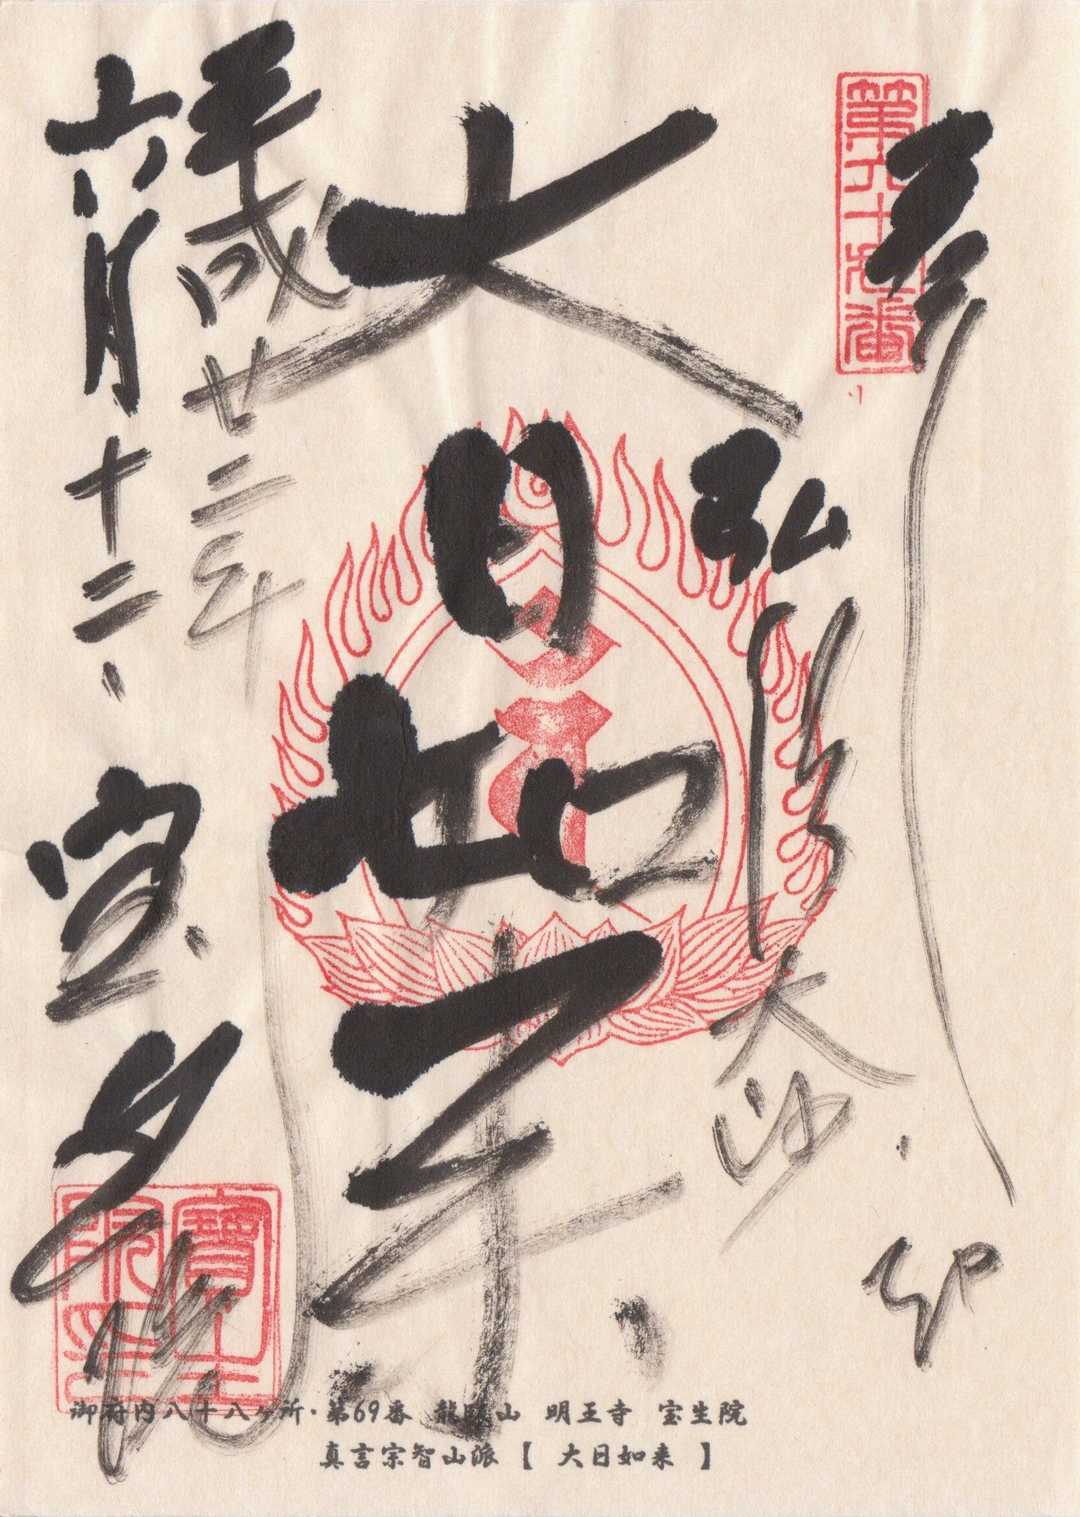 第六十九番
奉
弘法大師
大日如来
平成廿二年
六月十二、
宝生院
寶生院
御府内八十八ヶ所・第69番 龍臥山 明王寺 宝生院
真言宗智山派【 大日如来 】